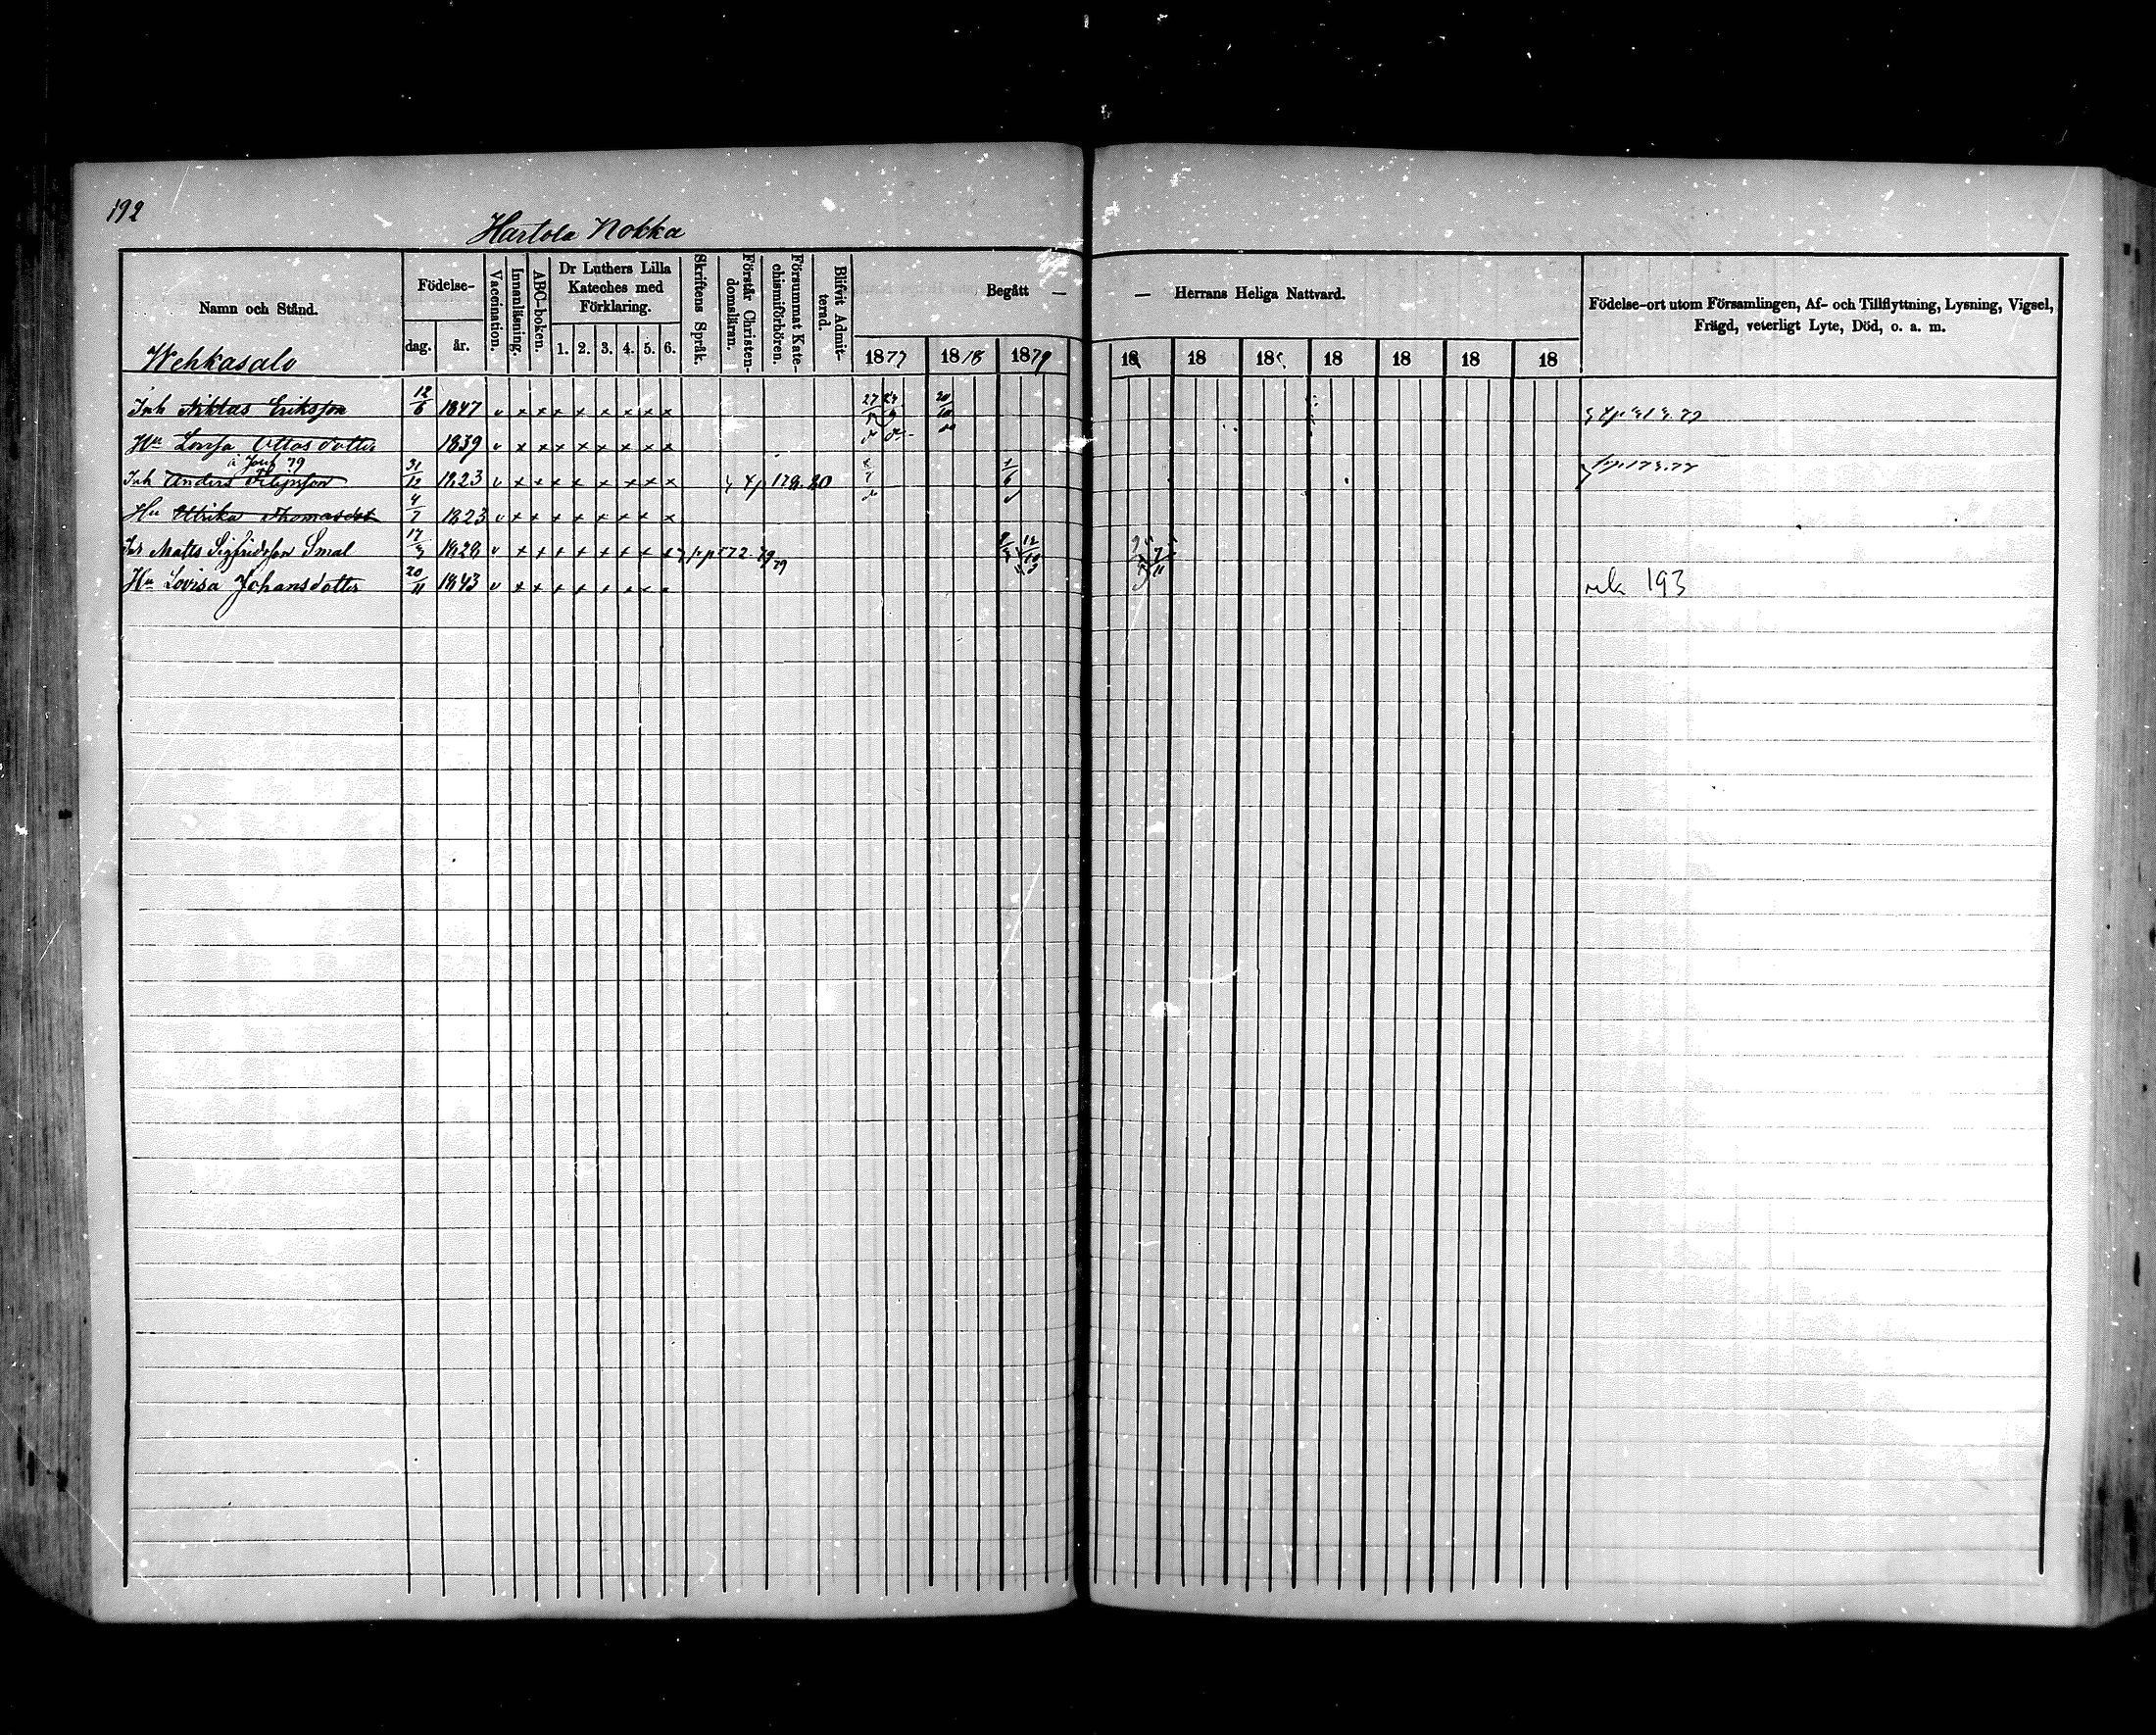 192
Hartola Nokka
Namn och Stånd.
Födelse-
dag.
år.
Vaccination.
Innanläsning.
ABC-boken.
Dr Luthers Lilla Kateches med Förklaring.
1. 2. 3. 4. 5. 6.
Skriftens Språk.
Förstår Christendomsläran.
Försummat Katechismiförhören.
Blifvit Admitterad.
Begått —
— Herrans Heliga Nattvard.
Födelse-ort utom Församlingen, Af- och Tillflyttning, Lysning, Vigsel,
Frägd, veterligt Lyte, Död, o. a. m.
1877 1878 1879 18 18 18 18 18 18 18
Wehkasalo
Inh Niklas Eriksson 12/6 1847 v x x x x x x x x
Hu Lovisa Ottosdotter 1839 v x x x x x x x x
Inh Anders 31/12 1823 v x x x x x x x x
Hu Ulrika Thomasdot 4/7 1823 v x x x x x x x
Matts Sigfridsson Smal 17/3 1828 v x x x x x x x x
Hu Lovisa Johansdotter 20/11 1843 v x x x x x x x x 193